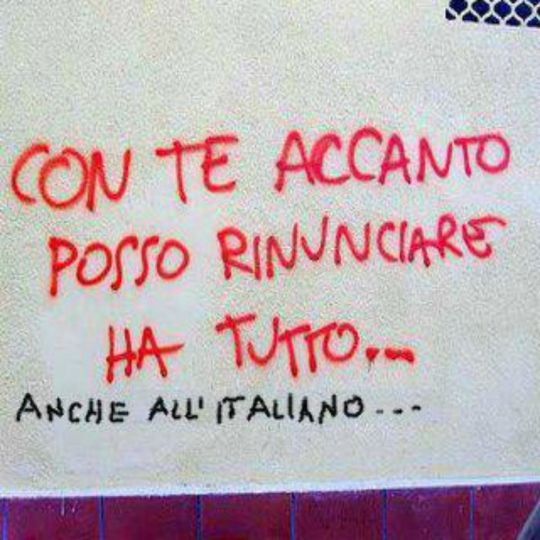 CON TE ACCANTO
POSSO RINUNCIARE
HA TUTTO...
ANCHE ALL'ITALIANO...